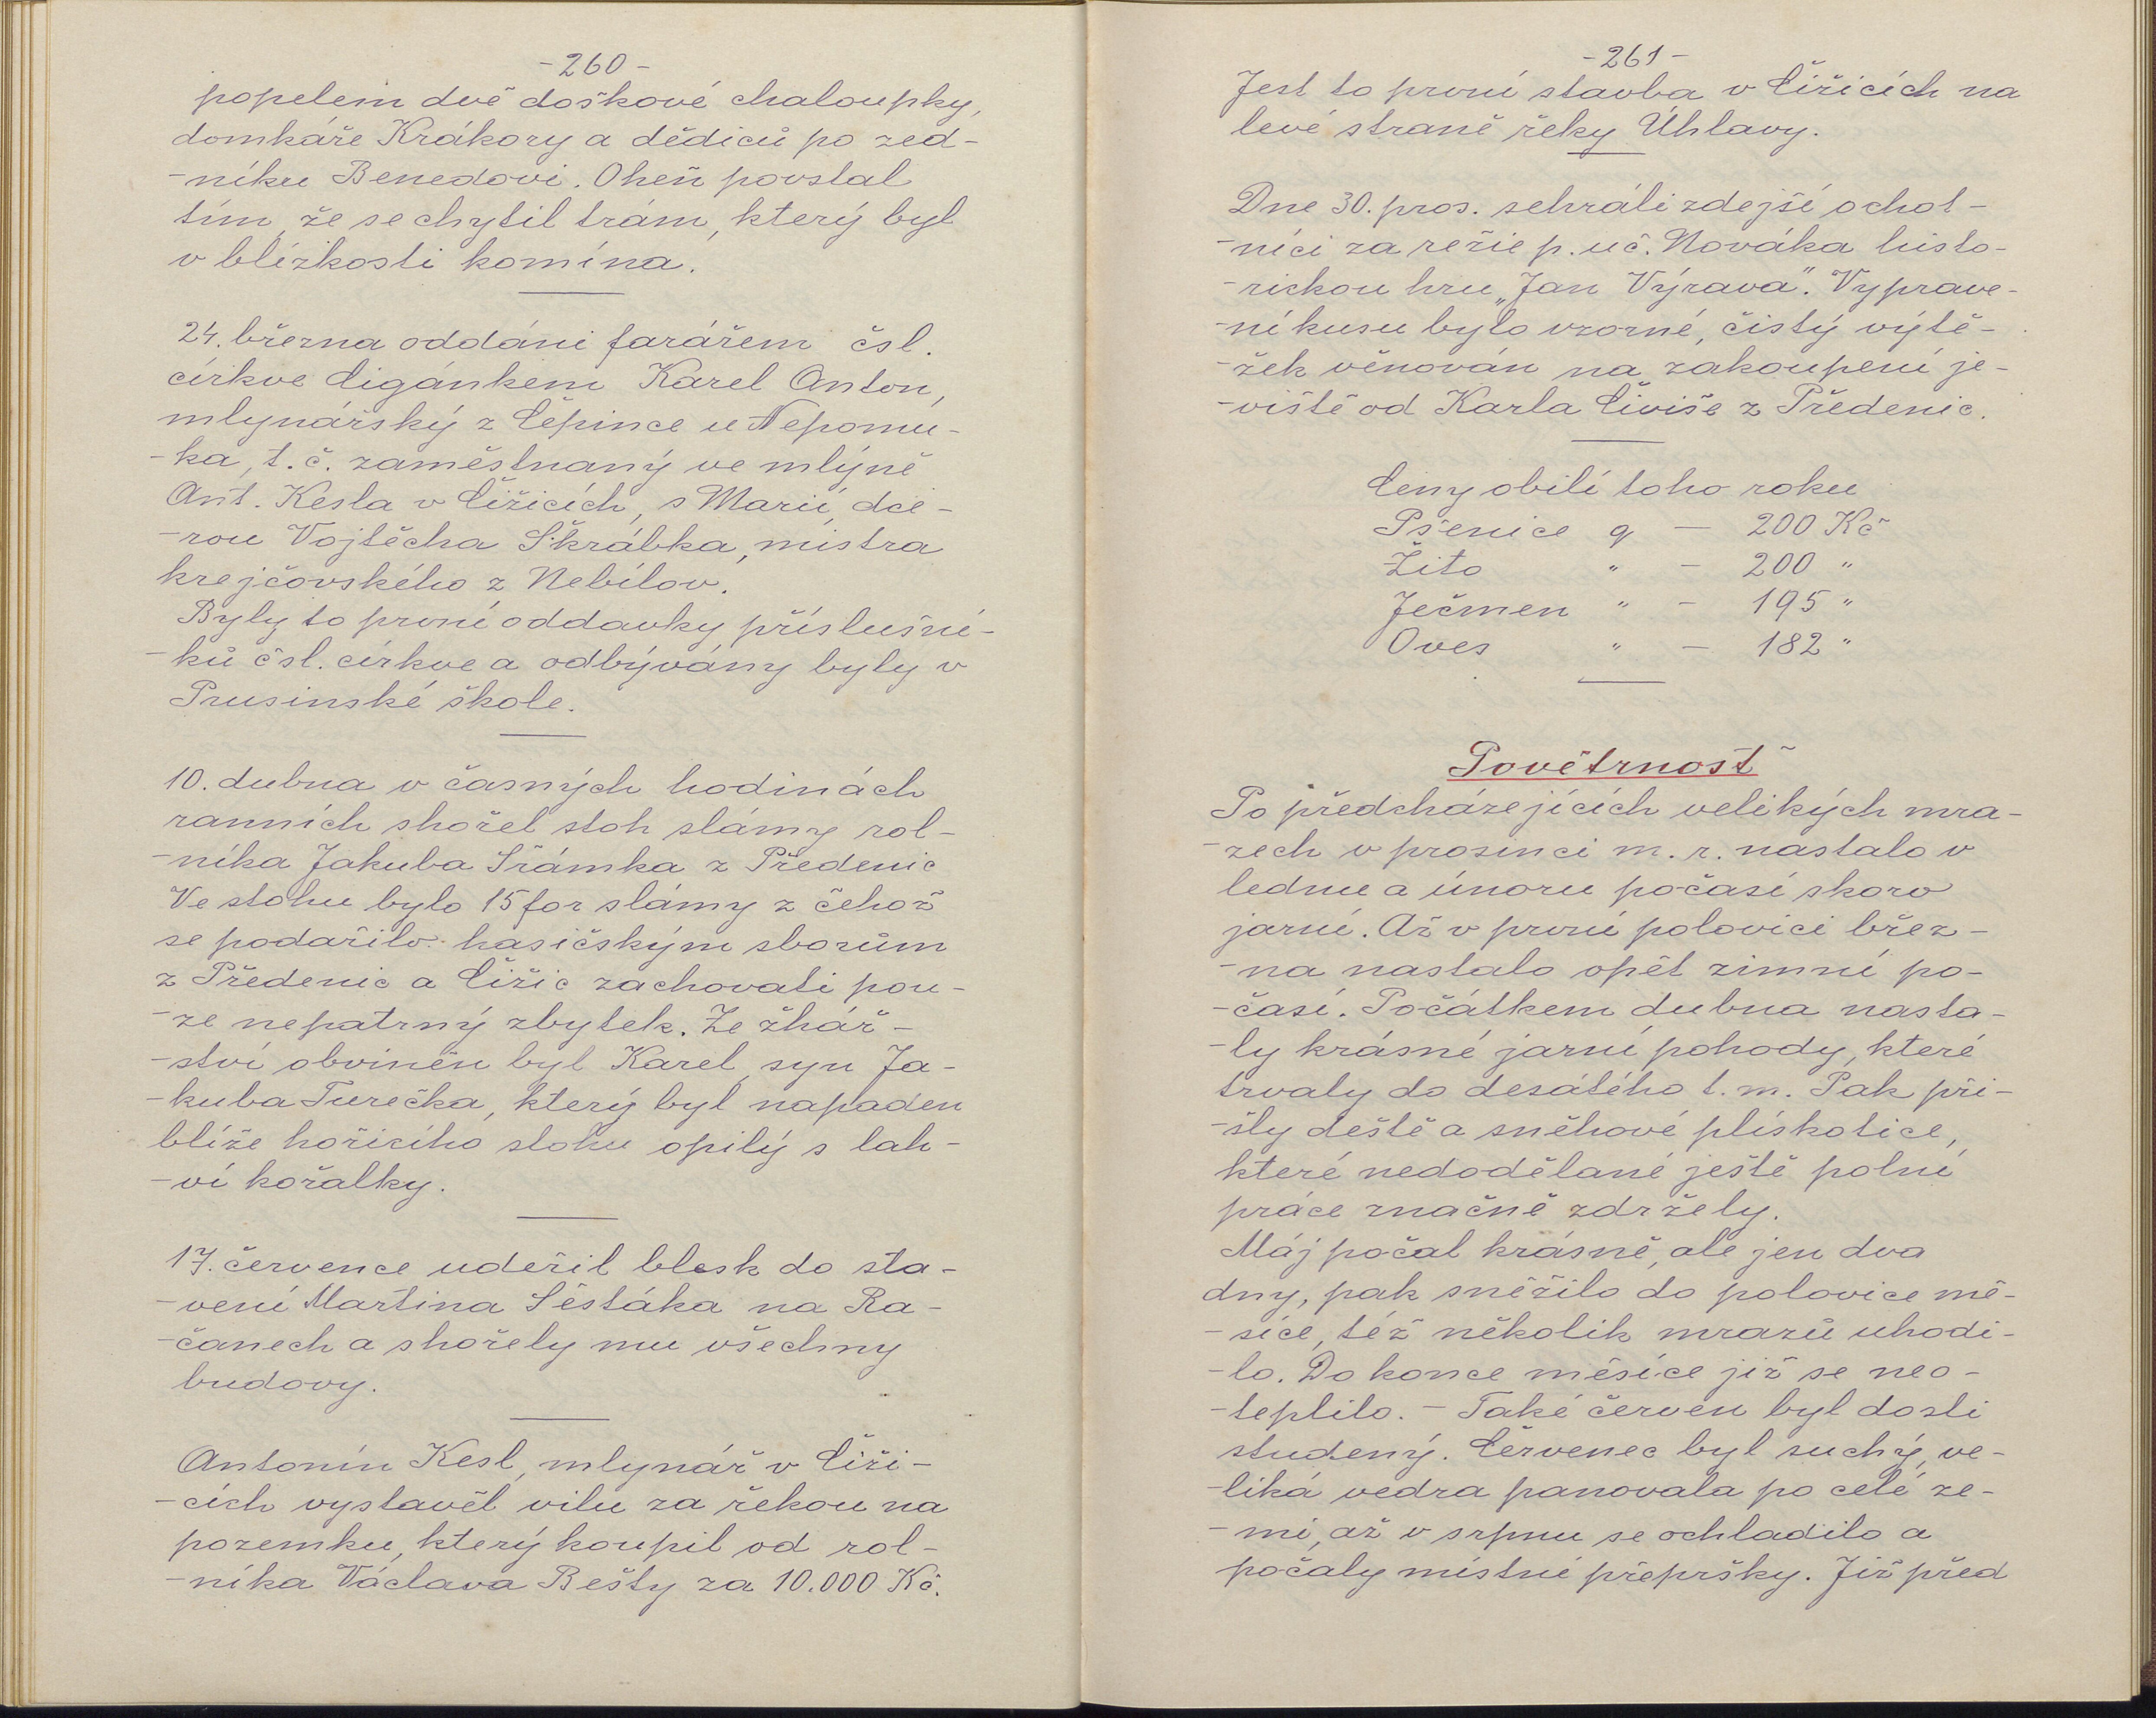 -260-
popelem dvě doškové chaloupky,
domkáře Krákory a dědiců po zed-
-níku Benedovi. Oheň povstal
tím, že se chytil trám, který byl
v blízkosti komína.
24. března oddáni farářem čsl.
církve Cigánkem Karel Anton,
mlynářský z Čepince u Nepomu-
-ka, t. č. zaměstnaný ve mlýně
Ant. Kesla v Čižicích, s Marií, dce-
-rou Vojtěcha Škrábka, mistra
krejčovského z Nebílov.
Byly to první oddavky příslušní-
-ků čsl. církve a odbývány byly v
Prusinské škole.
10. dubna v časných hodinách
ranních shořel stoh slámy rol-
-níka Jakuba Šrámka z Předenic
Ve stohu bylo 15 for slámy z čehož
se podařilo hasičským sborům
z Předenic a Čižic zachovati pou-
-ze nepatrný zbytek. Ze žhář-
-ství obviněn byl Karel, syn Ja-
-kuba Turečka, který byl napaden
blíže hořícího stohu opilý s lah-
-ví kořalky.
17. července udeřil blesk do sta-
-vení Martina Šestáka na Ra-
-čanech a shořely mu všechny
budovy.
Antonín Kesl, mlynář v Čiži-
-cích vystavěl vilu za řekou na
pozemku, který koupil od rol-
-níka Václava Bešty za 10.000 Kč.
-261-
Jest to první stavba v Čižicích na
levé straně řeky Úhlavy.
Dne 30. pros. sehráli zdejší ochot-
-níci za režie p. uč. Nováka histo-
-rickou hru „Jan Výrava". Vyprave-
-ní kusu bylo vzorné, čistý výtě-
-žek věnován na zakoupení je-
-viště od Karla Čiviše z Předenic.
Ceny obilí toho roku
Pšenice q — 200 Kč
Žito " — 200 "
Ječmen " — 195 "
Oves " — 182 "
Povětrnost
Po předcházejících velikých mra-
-zech v prosinci m. r. nastalo v
lednu a únoru počasí skoro
jarní. Až v první polovici břez-
-na nastalo opět zimní po-
-časí. Počátkem dubna nasta-
-ly krásné jarní pohody, které
trvaly do desátého t. m. Pak při-
-šly deště a sněhové plískotice,
které nedodělané ještě polní
práce značně zdržely.
Máj počal krásně, ale jen dva
dny, pak sněžilo do polovice mě-
-síce, též několik mrazů uhodi-
-lo. Do konce měsíce již se neo-
-teplilo. - Také červen byl dosti
studený. Červenec byl suchý, ve-
-liká vedra panovala po celé ze-
-mi, až v srpnu se ochladilo a
počaly místní přepršky. Již před